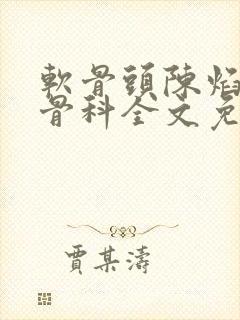 軟骨頭陳焰
骨科全文免
賈某濤